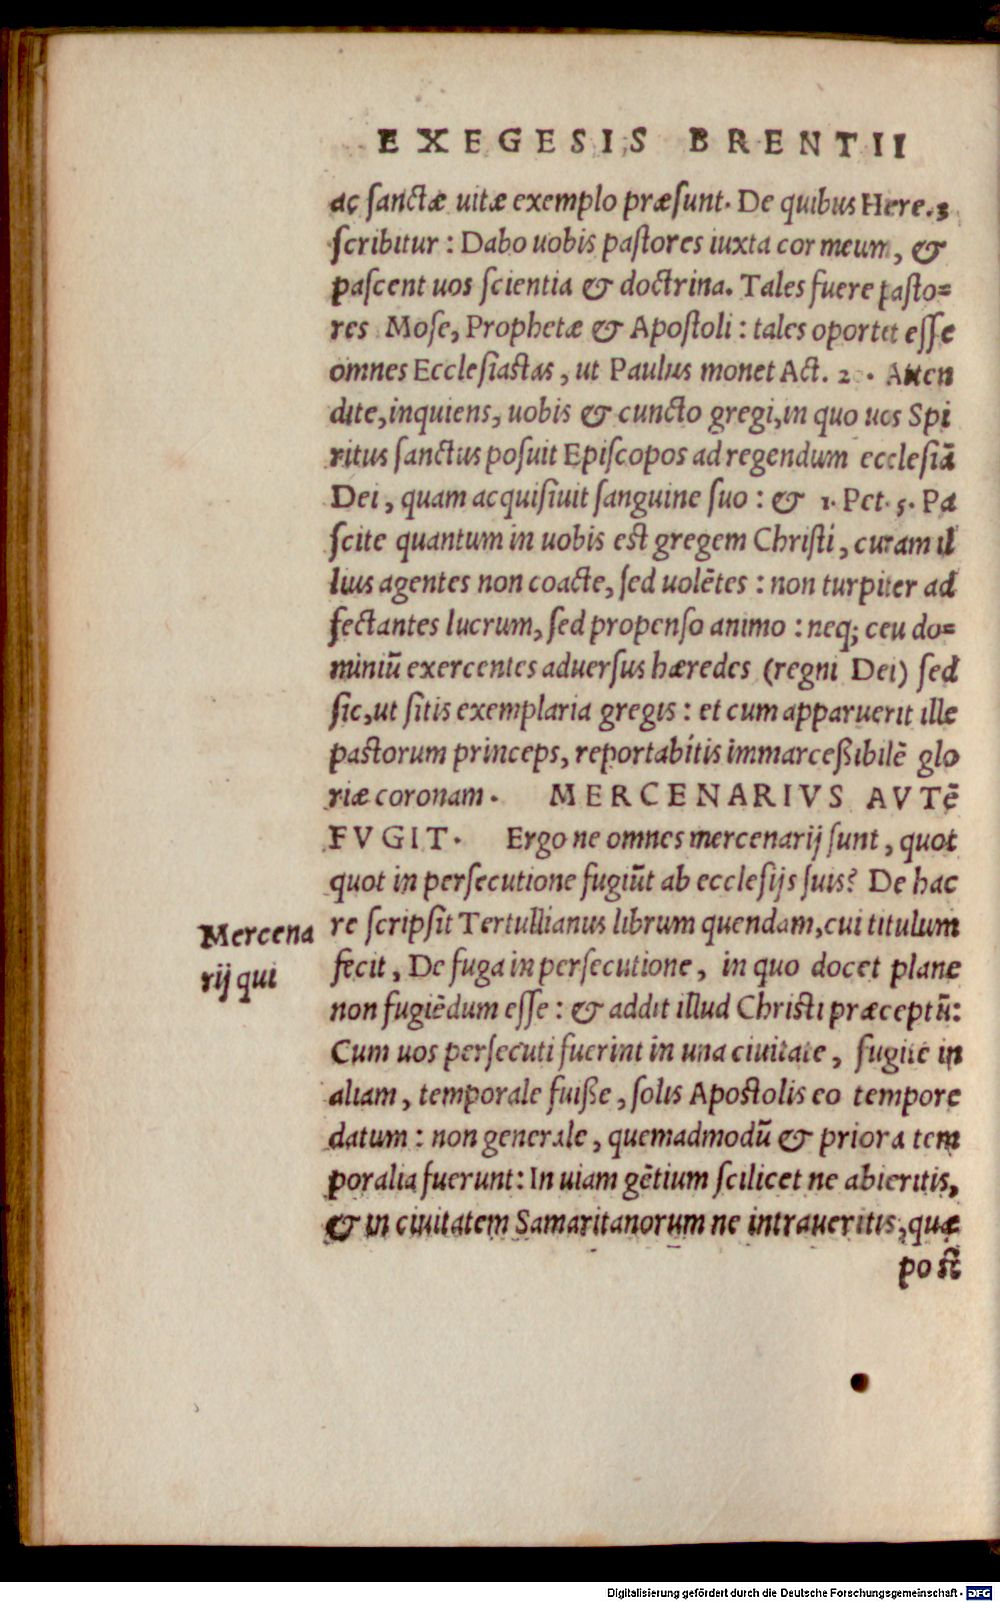 EXEGESIS BRENTII
ac ſanctæ uitæ exemplo præſunt. De quibus Here. 3
ſcribitur : Dabo uobis paſtores iuxta cor meum, &
paſcent uos ſcientia & doctrina. Tales fuere paſto=
res Moſe, Prophetæ & Apoſtoli : tales oportet eſſe
omnes Eccleſiaſtas, ut Paulus monet Act. 2 . Atten
dite, inquiens, uobis & cuncto gregi, in quo uos Spi
ritus ſanctus poſuit Epiſcopos ad regendum eccleſiā
Dei, quam acquiſiuit ſanguine ſuo : & 1. Pet. 5. Pa
ſcite quantum in uobis eſt gregem Chriſti, curam il
lius agentes non coacte, ſed uolētes : non turpiter ad
fectantes lucrum, ſed propenſo animo : neq; ceu do=
miniū exercentes aduerſus hæredes (regni Dei) ſed
ſic, ut ſitis exemplaria gregis : et cum apparuerit ille
paſtorum princeps, reportabitis immarceßibilē glo
riæ coronam. MERCENARIVS AVTē
FVGIT. Ergo ne omnes mercenarij ſunt, quot
quot in perſecutione fugiūt ab eccleſijs ſuis? De hac
Mercena
rij qui
re ſcripſit Tertullianus librum quendam, cui titulum
fecit, De fuga in perſecutione, in quo docet plane
non fugiēdum eſſe : & addit illud Chriſti præceptū:
Cum uos perſecuti fuerint in una ciuitate, fugite in
aliam, temporale fuiße, ſolis Apoſtolis eo tempore
datum : non generale, quemadmodū & priora tem
poralia fuerunt: In uiam gētium ſcilicet ne abieritis,
& in ciuitatem Samaritanorum ne intraueritis, quæ
poſt
Digitalisierung gefördert durch die Deutsche Forschungsgemeinschaft - DFG